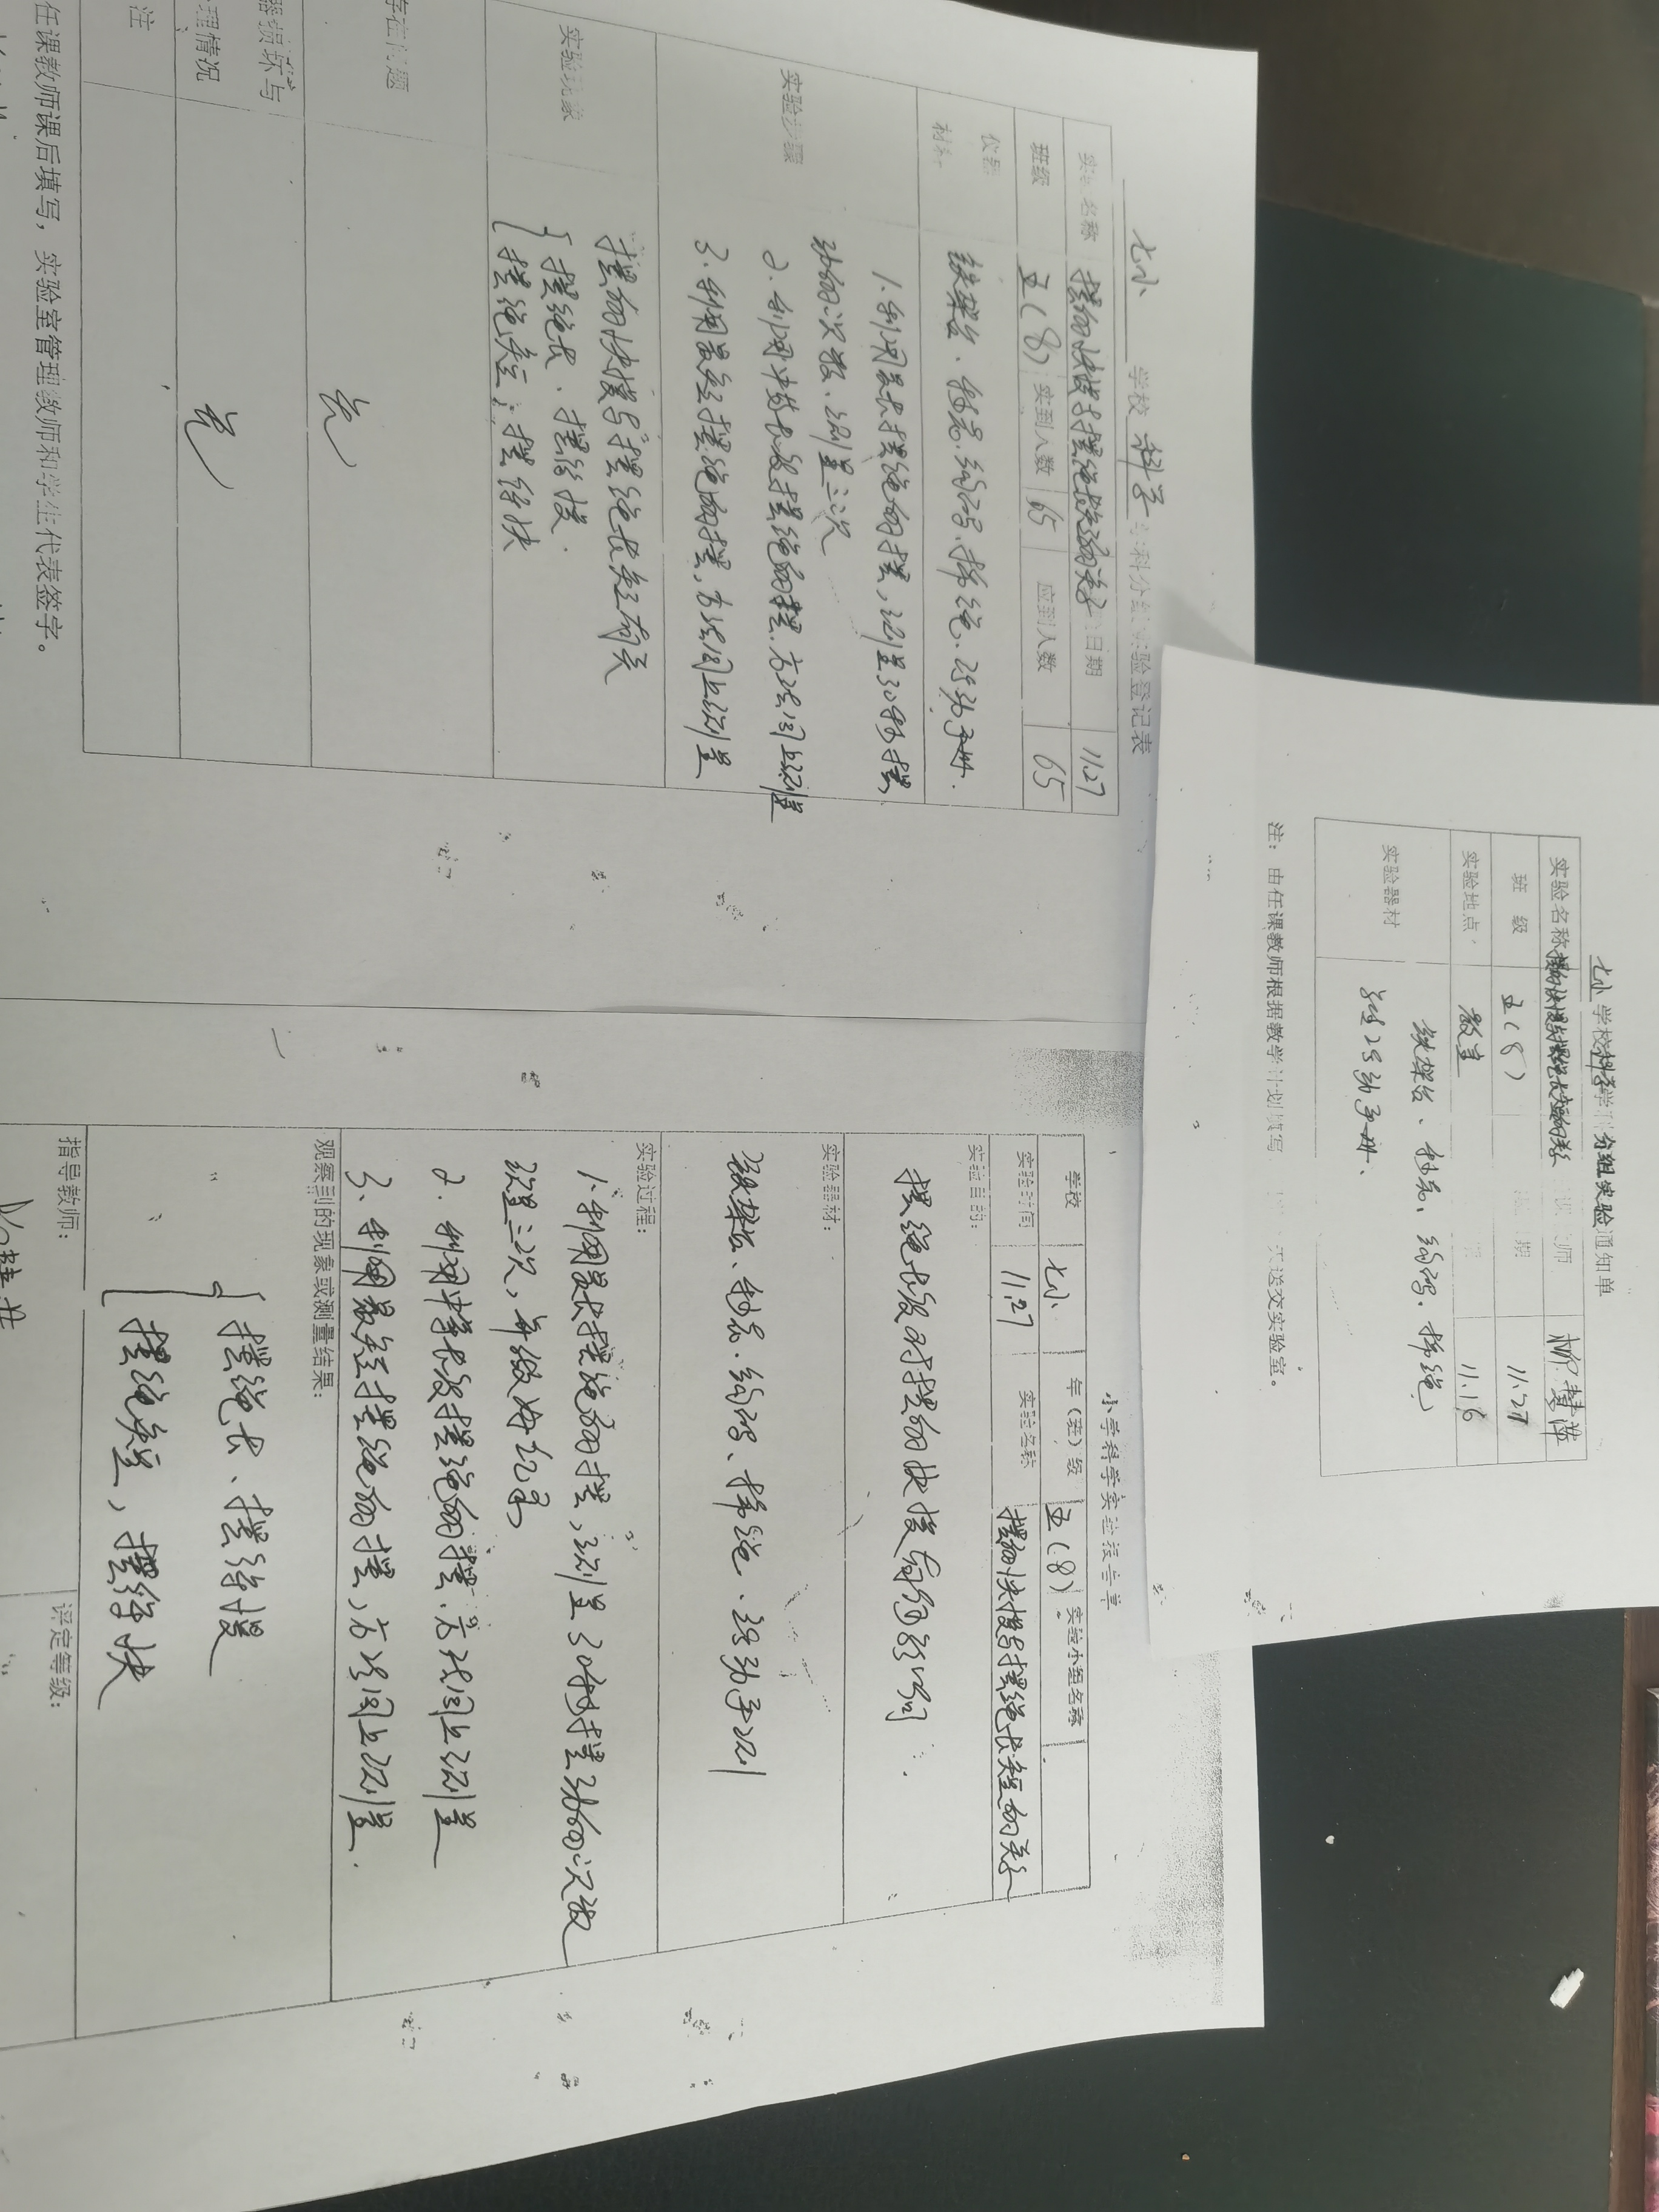 七小 学校 科学 学科分组实验登记表
实验名称 摆的快慢与摆绳长短的关系 日期 11.27
班级 五(8) 实到人数 65 应到人数 65
仪器
材料 铁架台、秒表、钩码、棉绳、活动手册.
实验步骤
1.利用最长摆绳的摆,测量30秒摆
动的次数、测量三次
2.利用中等长度摆绳的摆.方法同上测量
3.利用最短摆绳的摆,方法同上测量
实验现象
摆的快慢与摆绳长短有关
摆绳长、摆得慢.
摆绳短,摆得快
存在问题 无
器损坏与
理情况 无
注
任课教师课后填写,实验室管理教师和学生代表签字。
七小 学校 科学 学科分组实验通知单
实验名称 摆的快慢与摆绳长短的关系 师 柳慧萍
班 级 五(8) 期 11.27
实验地点 教室 期 11.16
实验器材 铁架台、秒表、钩码、棉绳
活动手册、
注:由任课教师根据教学计划填写 天送交实验室。
小学科学实验报告单
学校 七小 年(班)级 五(8) 实验小组名称
实验时间 11.27 实验名称 摆的快慢与摆绳长短的关系
实验目的:
摆绳长度对摆的快慢有何影响
实验器材:
铁架台、秒表.钩码、棉绳、活动手册
实验过程:
1.利用最长摆绳的摆,测量30秒摆动的次数
测量三次,并做好记录
2.利用中等长度摆绳的摆.方法同上测量
3.利用最短摆绳的摆,方法同上测量.
观察到的现象或测量结果:
摆绳长、摆得慢
摆绳短,摆得快
指导教师:
评定等级: